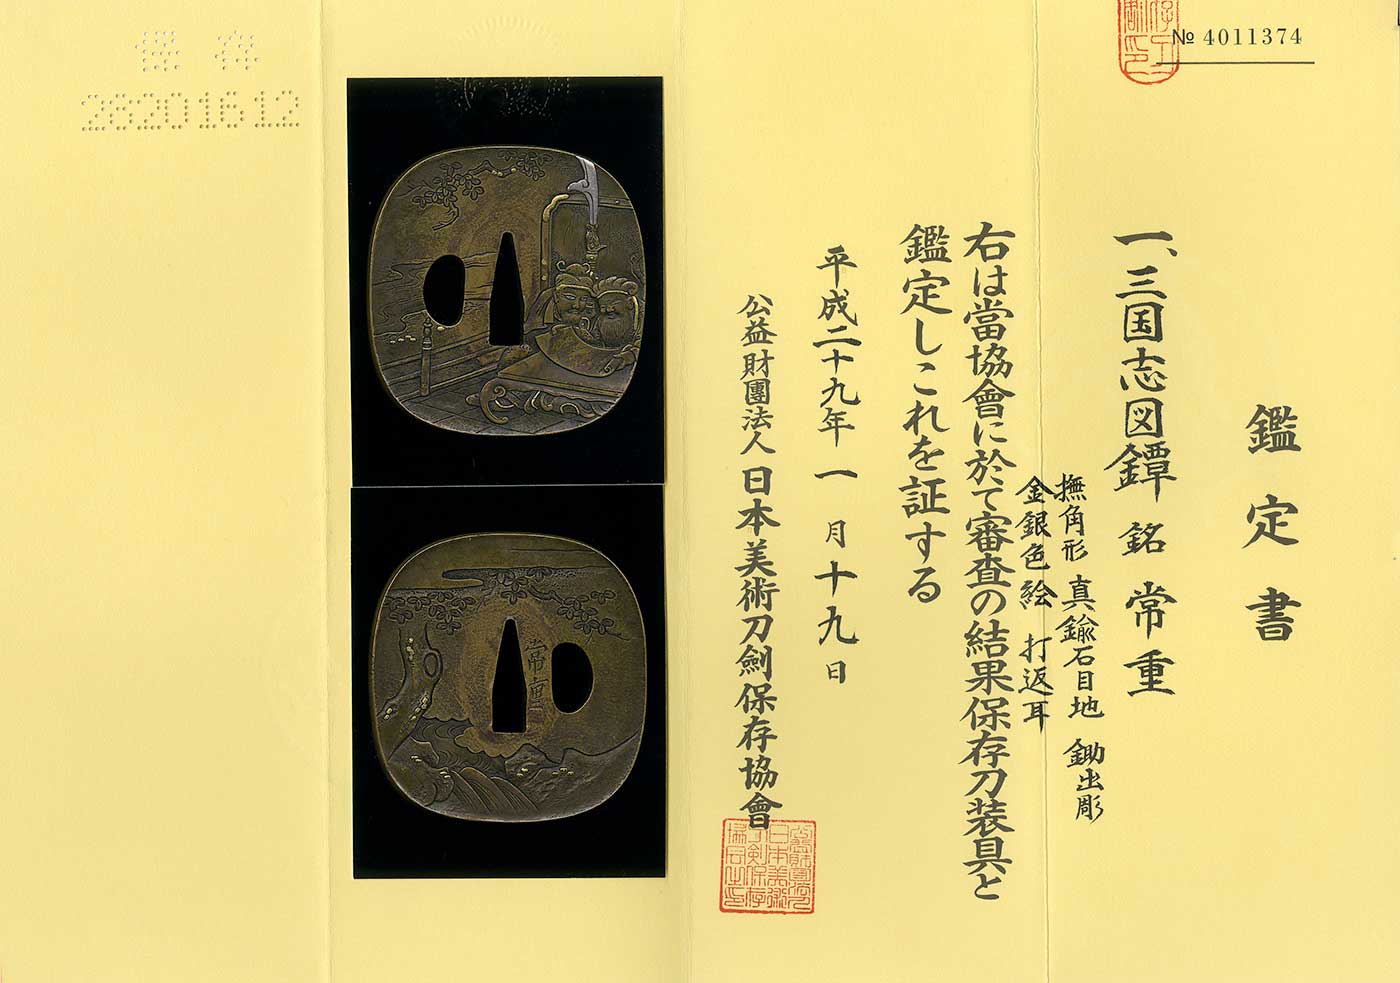 № 4011374
鑑定書
一、三国志図鐔 銘 常重
撫角形 真鍮石目地 鋤出彫
金銀色絵 打返耳
右は當協會に於て審査の結果保存刀装具と
鑑定しこれを証する
平成二十九年一月十九日
公益財團法人 日本美術刀劍保存協會
常重
保存
28201612